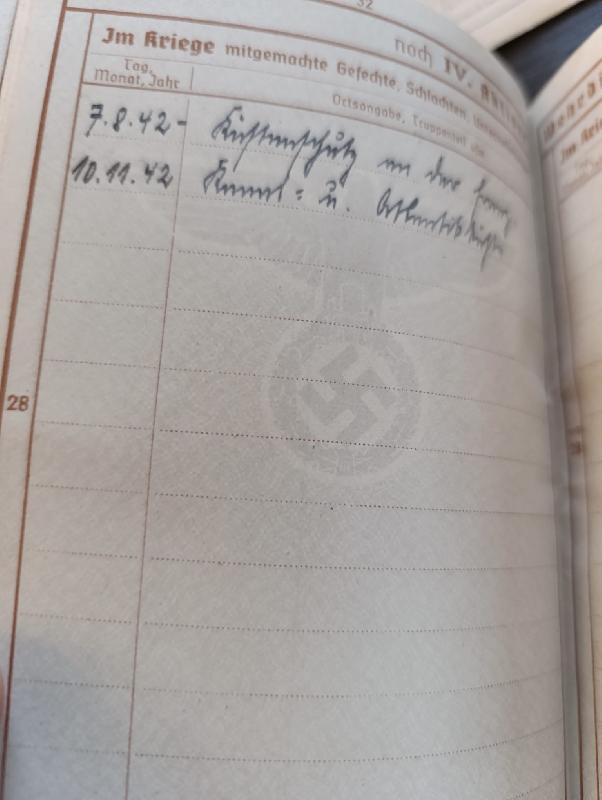 32
noch IV. 
Im Kriege mitgemachte Gefechte, Schlachten,
Tag, Monat, Jahr
Ortsangabe, Truppenteil usw.
7.8.42 - Küstenschutz an der franz.
10.11.42 Kanal= u. Atlantikküste
28